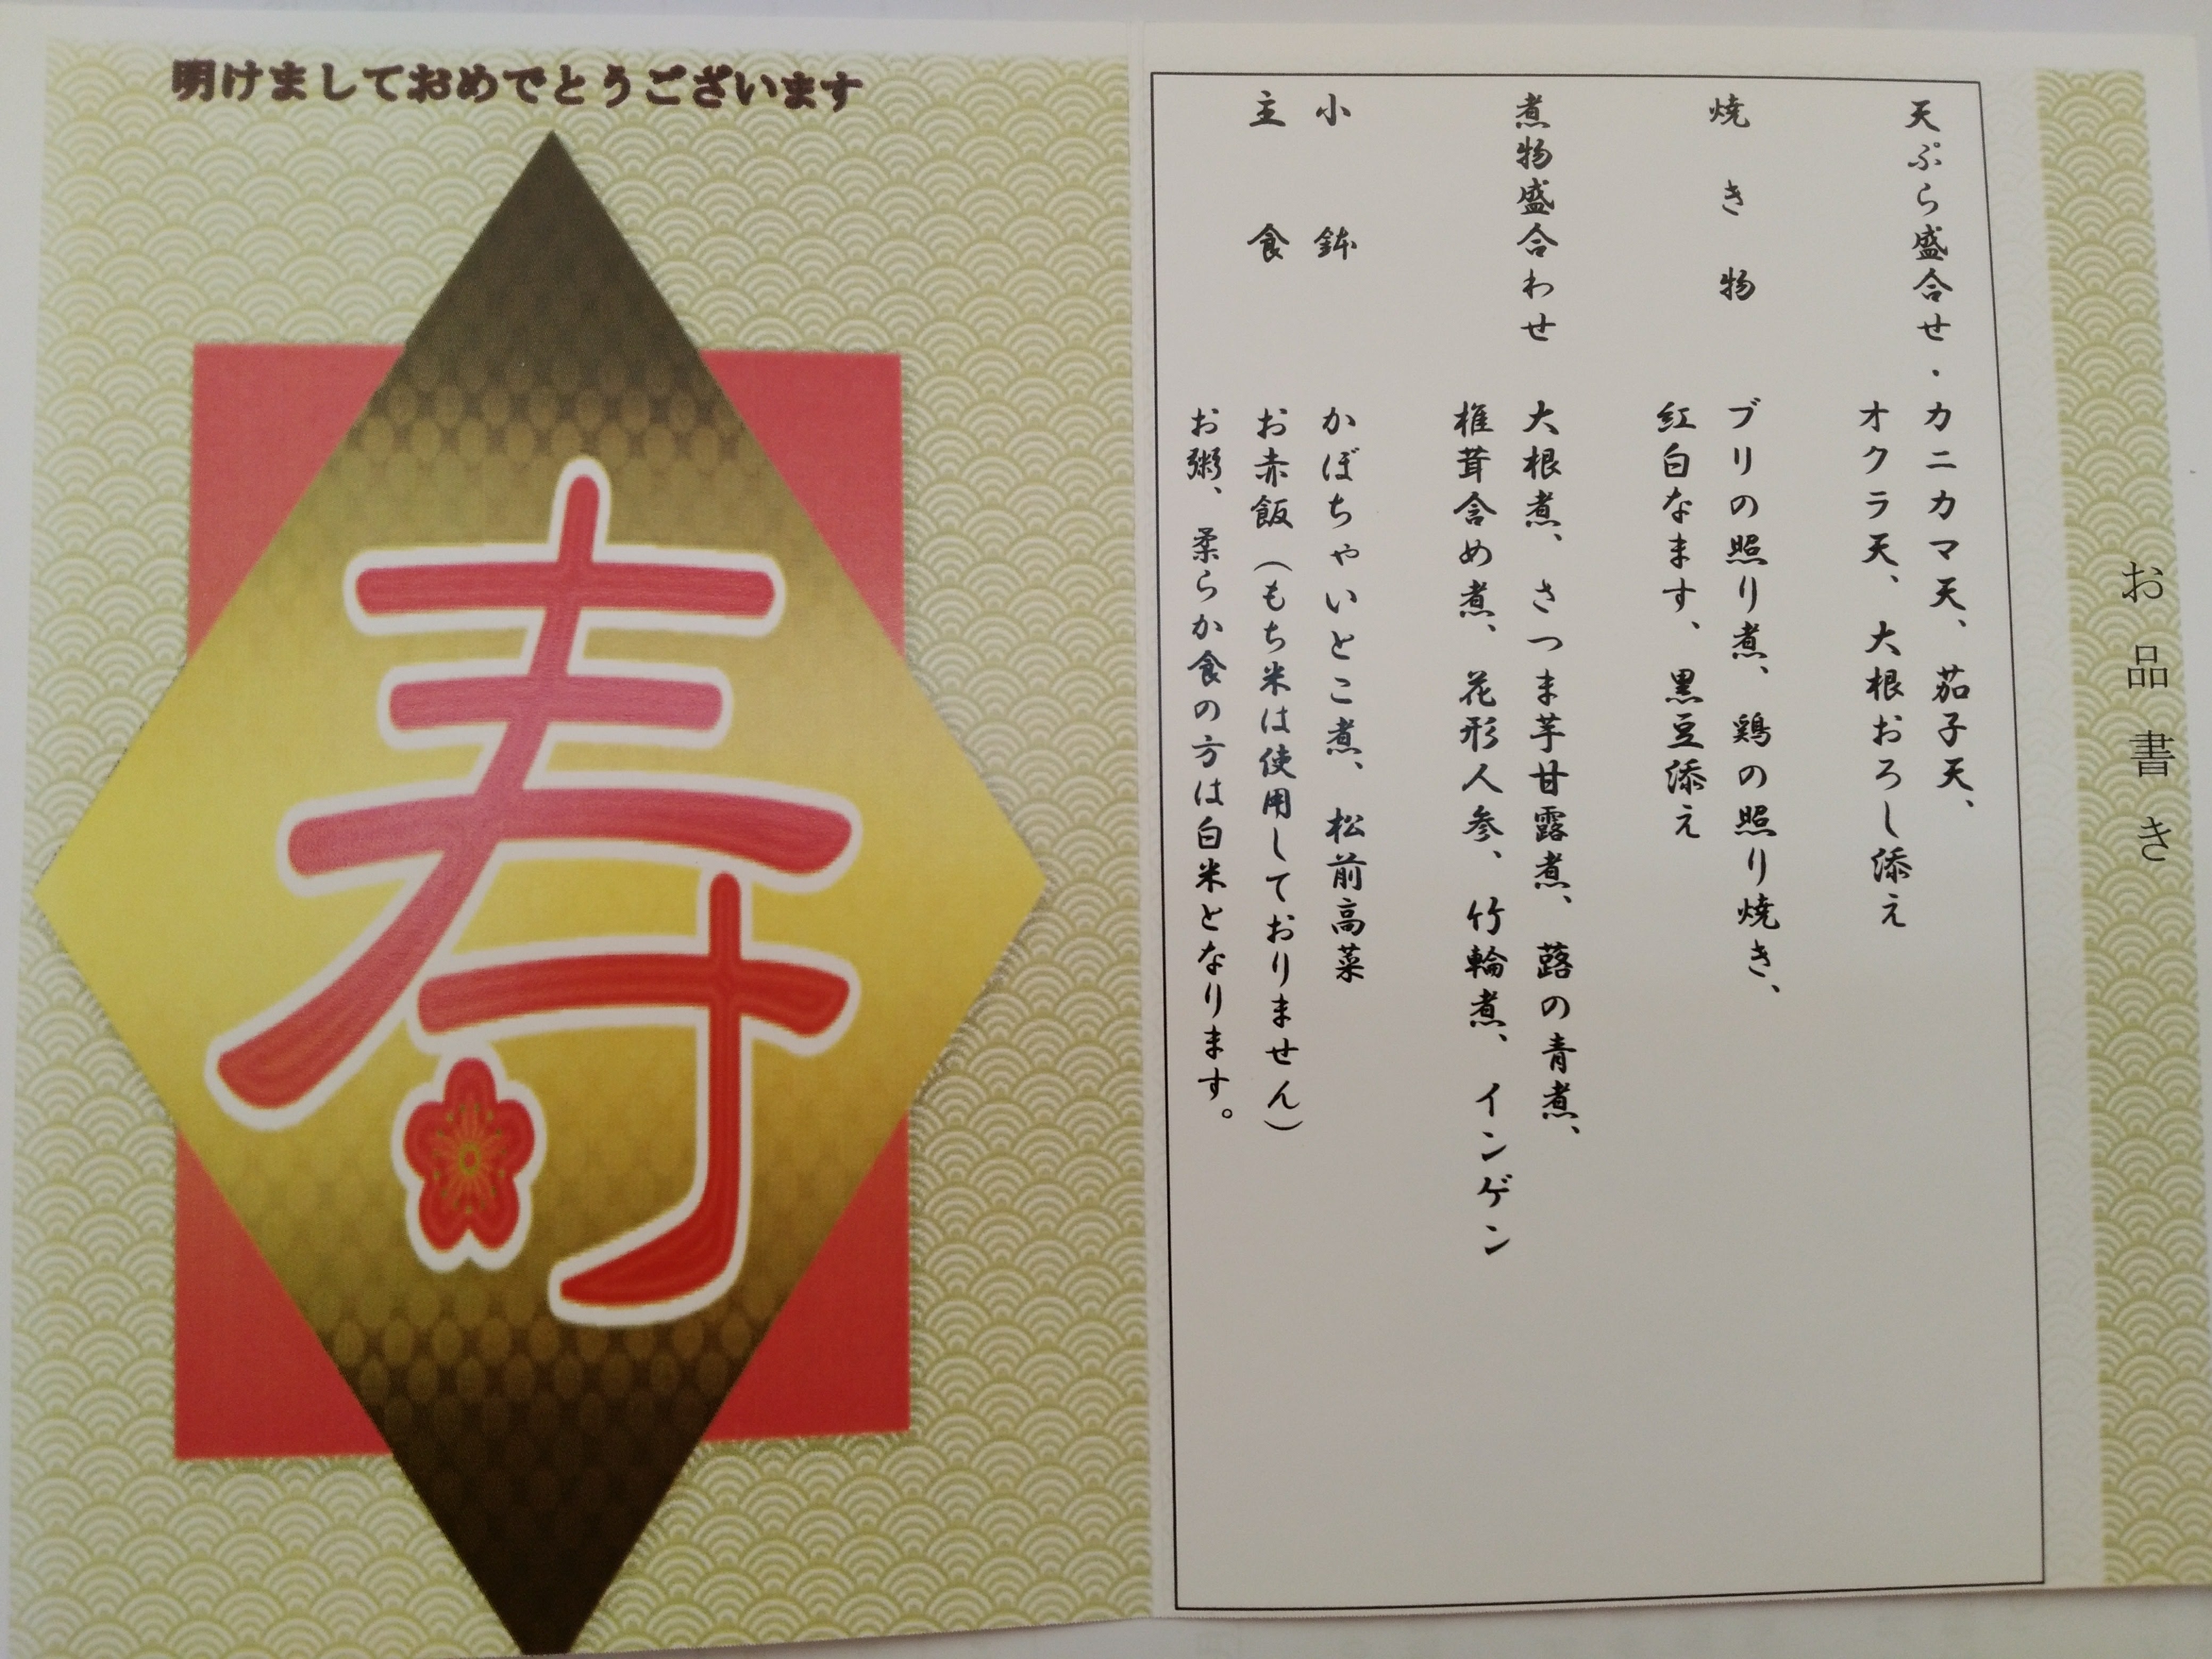 明けましておめでとうございます
寿
お品書き
天ぷら盛合せ・カニカマ天、茄子天、
オクラ天、大根おろし添え
焼き物 ブリの照り煮、鶏の照り焼き、
紅白なます、黒豆添え
煮物盛合わせ 大根煮、さつま芋甘露煮、蕗の青煮、
椎茸含め煮、花形人参、竹輪煮、インゲン
小鉢 かぼちゃいとこ煮、松前高菜
主食 お赤飯（もち米は使用しておりません）
お粥、柔らか食の方は白米となります。